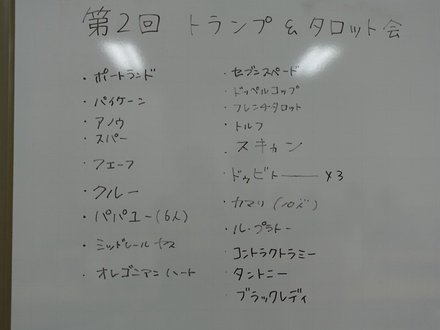 第2回 トランプ & タロット会
・ポートランド
・パイケーン
・アノウ
・スパー
・フェーフ
・クルー
・パパユー(6人)
・ミッドレール ヤス
・オレゴニアン ハート
・セブンスペード
・ドッペルコップ
・フレンチタロット
・トルフ
・スキャン
・ドゥビト—— ×3
・カマリ(10〆)
・ル・プラトー
・コントラクトラミー
・タントニー
・ブラックレディ